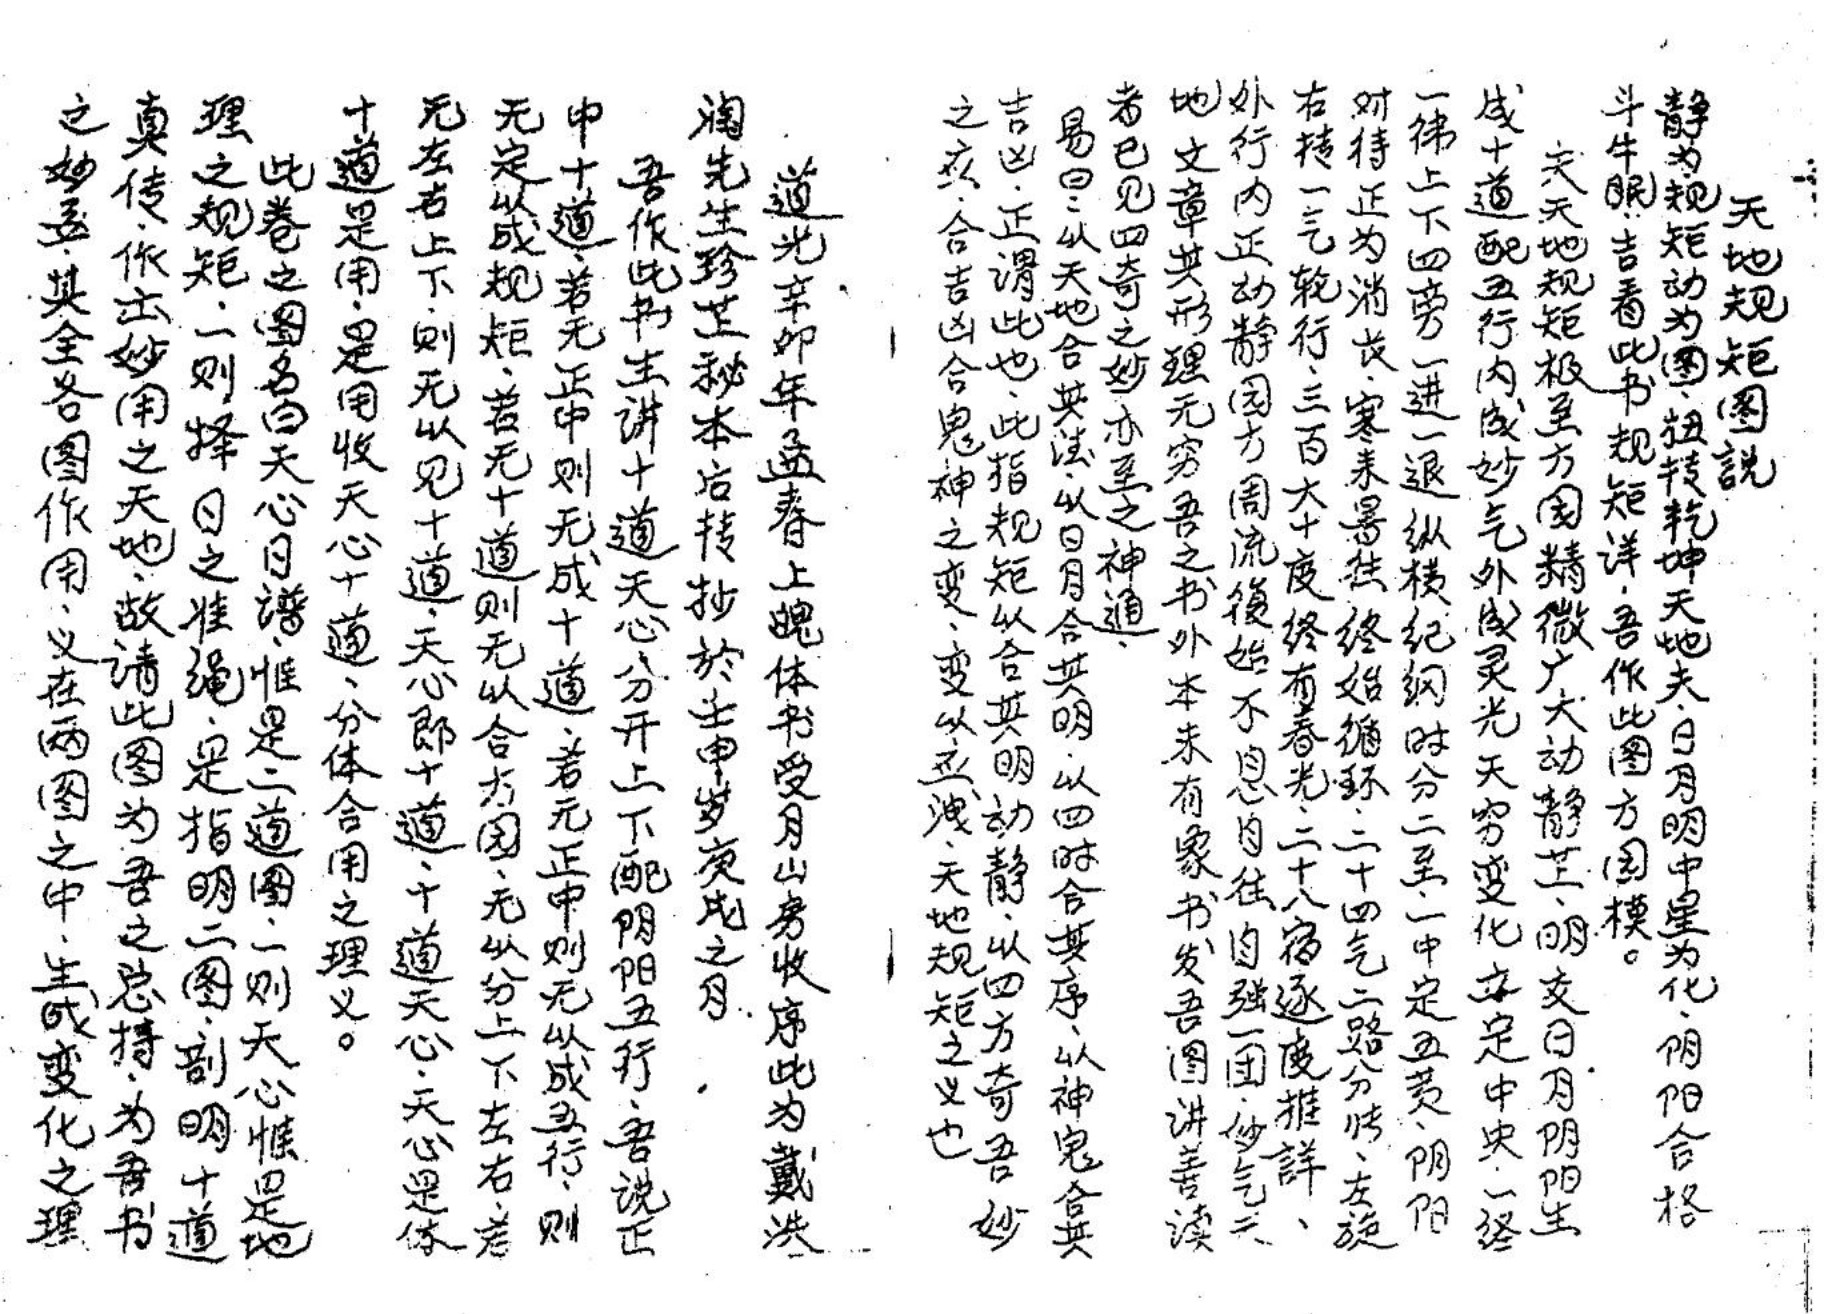 天地规矩图説
静为规矩动为图．扭转乾坤天地夫．日月明中星为化．阴阳合格
斗牛眠．吉看此书规矩详．吾作此图方园模。
夫天地规矩极至方园精微广大动静芷．明交日月阴阳生
成十道配五行内成妙气外成灵光天穷变化立定中央．一经
一纬上下四旁一进一退纵横纪纲时分二至．一中定五黄．阴阳
对待正为消长．寒来暑往终始循环．二十四气二路分
右转一气轮行．三百六十度终有春光．二十八宿逐度推詳、
外行内正动静园方周流復始不息自往自强一团．妙气天
地文章其形理无穷吾之书外本未有象书发吾图讲善读
者已见四奇之妙亦至之神通．
易曰：以天地合其法．以日月合其明．以四时合其序．以神鬼合其
吉凶．正谓此也．此指规矩以合其明动静．以四方奇吾妙
之 合吉凶合鬼神之变．变以 洩．天地规矩之义也
道光辛卯年孟春上魄体书受月山房收序此为戴洪
润先生珍芷秘本后转抄於壬申岁庚戌之月．
吾作此书生讲十道天心．分开上下配阴阳五行．吾说正
中十道．若无正中则无成十道．若无正中则无以成五行．则
无定以成规矩．若无十道则无以合方园．无以分上下左右．若
无左右上下．则无以见十道．天心即十道．十道天心．天心是体
十道是用．是用收天心十道．分体合用之理义。
此卷之图名曰天心日谱．惟是二道图．一则天心惟是地
理之规矩．一则择日之准绳．是指明二图．剖明十道
真传．作出妙用之天地．故请此图为吾之总持．为吾书
之妙 ．其全各图作用．义在两图之中．生成变化之理